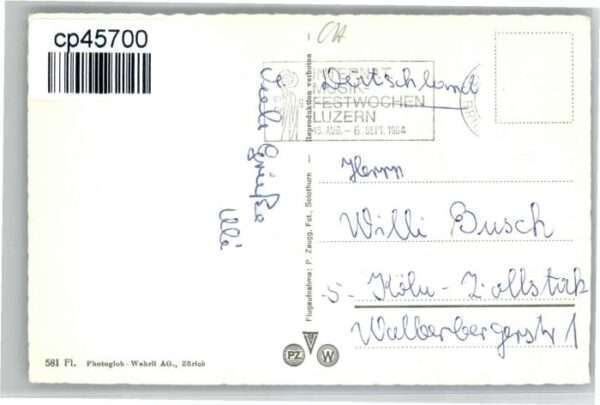 cp45700
CH
Viele Grüße
Ulli
Deutschland
INTERNAT.
MUSIK-
FESTWOCHEN
LUZERN
15. AUG. - 6. SEPT. 1964
Herrn
Willi Busch
5. Köln-Zollstock
Walberbergerstr 1
Flugaufnahme: P. Zaugg, Fot., Solothurn - Reproduktion verboten
PZ W
581 Fl. Photoglob-Wehrli AG., Zürich